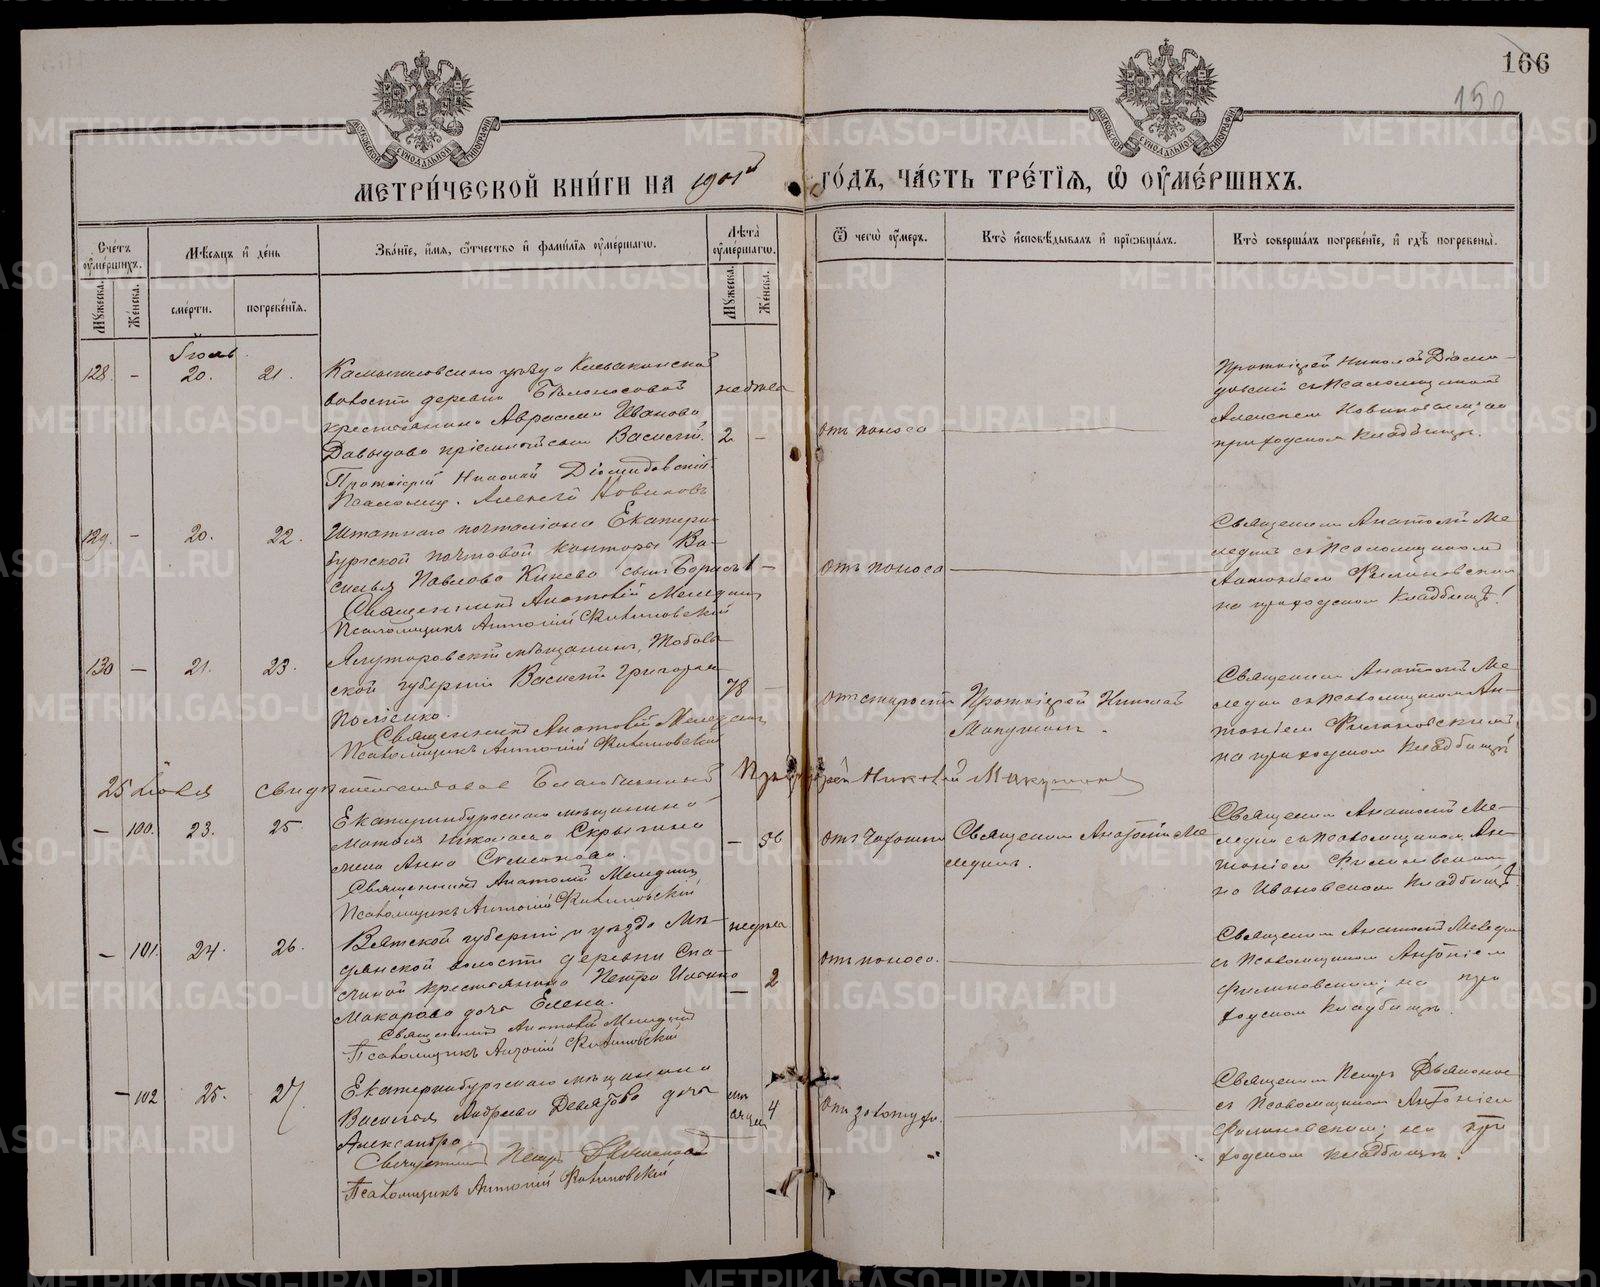 166
150
МЕТРИ́ЧЕСКОЙ КНИ́ГИ НА 1901й ГО́ДЪ, ЧА́СТЬ ТРЕ́ТІЯ, Ѽ ОУ҆МЕ́РШИХЪ.
Счетъ оумершихъ.
Мѣсяцъ и день
Званіе, имя, отчество и фамилія оумершагѡ.
Лѣта оумершагѡ.
Ѿ чегѡ оумеръ.
Кто исповѣдывалъ и пріобщалъ.
Кто совершалъ погребеніе, и гдѣ погребены.
Мужеска.
Женска.
смерти.
погребенія.
Мужеска.
Женска.
Іюль
128. – 20. 21.
Камышловскаго уѣзда
волости деревни Бѣлоносовой
крестьянина Авраамія Иванова
Давыдова пріемный сынъ Василій.
Протоіерей Николай Діомидовскій
Псаломщ. Алексѣй Новиковъ
недѣл
2 –
отъ поноса
Протоіерей Николай Діоми-
довскій съ Псаломщикомъ
Алексѣемъ Новиковымъ на
приходскомъ кладбищѣ.
129. – 20. 22.
Штатнаго почталіона Екатерин-
бургской почтовой конторы Ва-
силья Павлова Кинева сынъ Борисъ
Священникъ Анатолій Мелединъ
Псаломщикъ Антоній Филиновскій
1 –
отъ поноса
Священникъ Анатолій Ме-
лединъ съ Псаломщикомъ
Антоніемъ Филиновскимъ
на приходскомъ кладбищѣ.
130 – 21. 23.
Ялуторовскій мѣщанинъ, Тоболь-
ской губерніи Василій Григорьев
Священникъ Анатолій Мелединъ
Псаломщикъ Антоній Филиновскій
78 –
отъ старости
Протоіерей Николай
Микушинъ.
Священникъ Анатолій Ме-
лединъ съ Псаломщикомъ Ан-
тоніемъ Филиновскимъ
на приходскомъ кладбищѣ
25 Іюля свидѣтельствовалъ Благочинный Протоіерей Николай Микушинъ
– 100. 23. 25
Екатеринбургскаго мѣщанина
Николаева Скрыпина
жена Анна Семенова.
Священникъ Анатолій Мелединъ
Псаломщикъ Антоній Филиновскій
– 56
отъ чахотки
Священникъ Анатолій Ме-
лединъ.
Священникъ Анатолій Ме-
лединъ съ Псаломщикомъ Ан-
тоніемъ Филиновскимъ
на Ивановскомъ кладбищѣ.
– 101. 24. 26.
Вятской губерніи и уѣзда
волости деревни
крестьянина Петра
Макарова дочь Елена.
Священникъ Анатолій Мелединъ
Псаломщикъ Антоній Филиновскій
недѣл
– 2
отъ поноса.
Священникъ Анатолій Меледин
съ Псаломщикомъ Антоніемъ
Филиновскимъ; на при
ходскомъ кладбищѣ.
– 102 25. 27.
Екатеринбургскаго мѣщанина
Василья Андреева Девятова дочь
Александра
Священникъ Петръ
Псаломщикъ Антоній Филиновскій
4
отъ золотухи.
Священникъ Петръ
съ Псаломщикомъ Антоніемъ
Филиновскимъ; на при
ходскомъ кладбищѣ.
METRIKI.GASO-URAL.RU